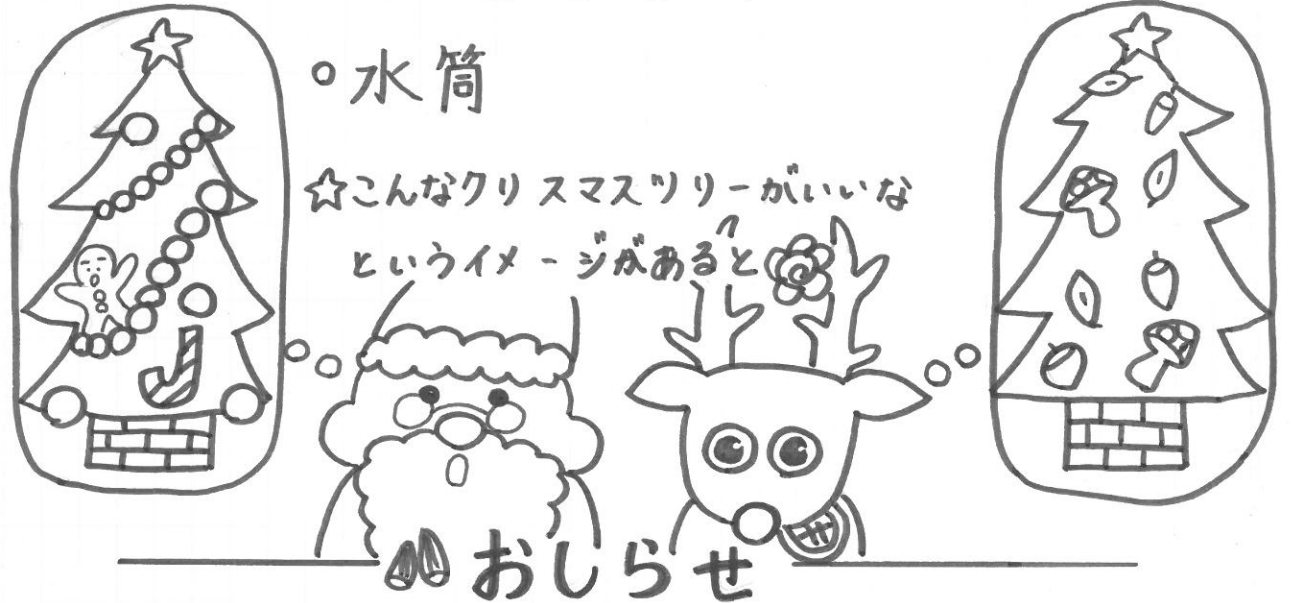 ○水筒
☆こんなクリスマスツリーがいいな
というイメージがあると
おしらせ